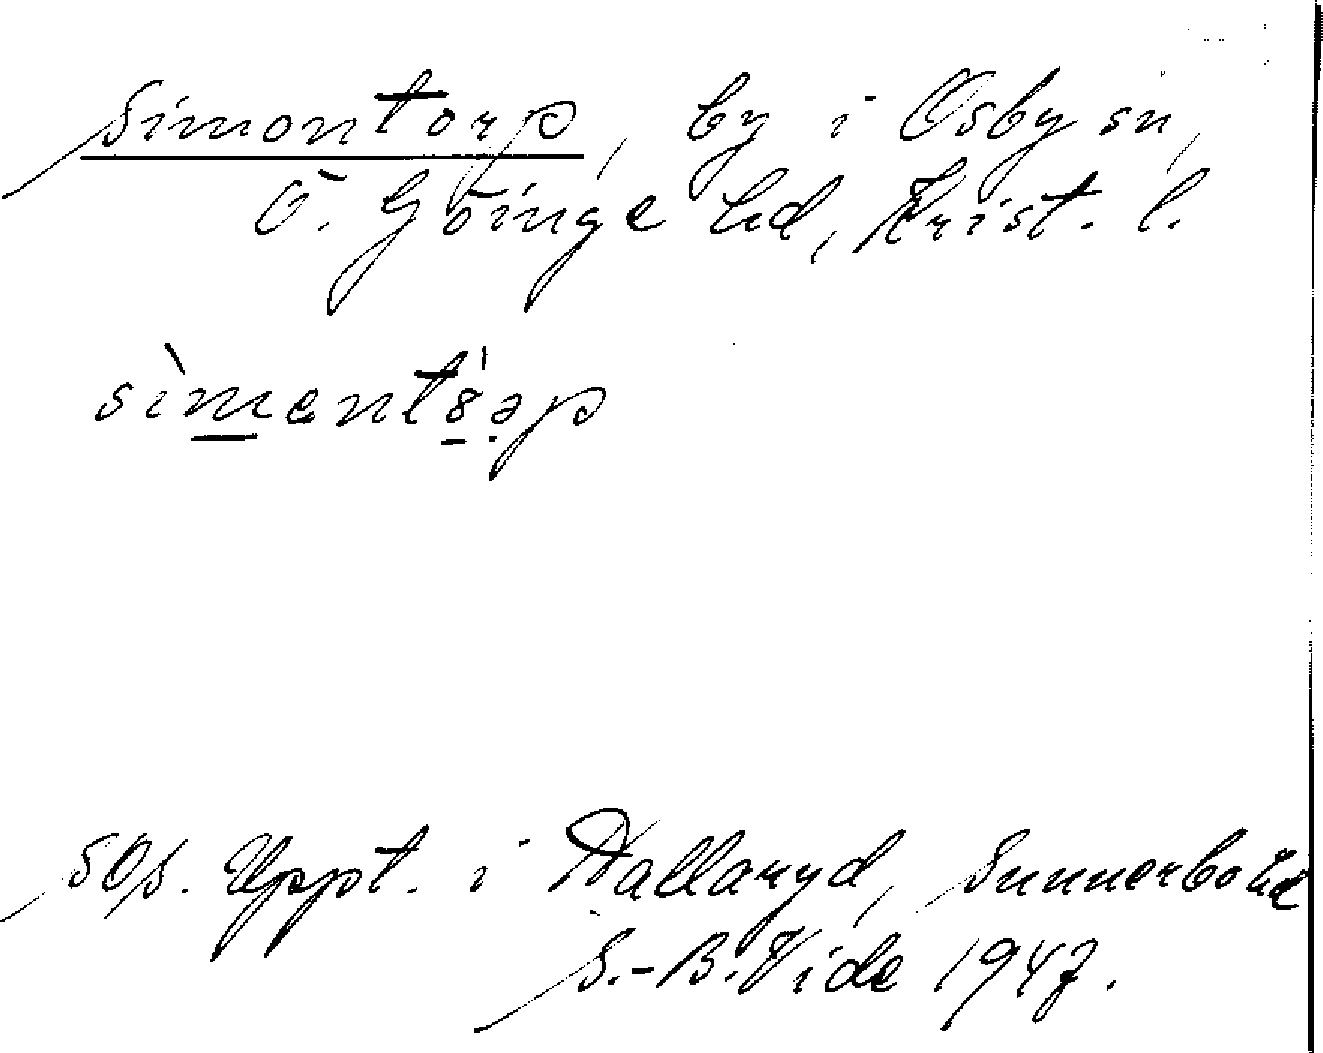 Simontorp, by i Osby sn,
Ö. Göinge hd, Krist. l.
sìmentşəp
SOS. Uppt. i Hallaryd, Sunnerbo hd
S.-B. Vide 1947.